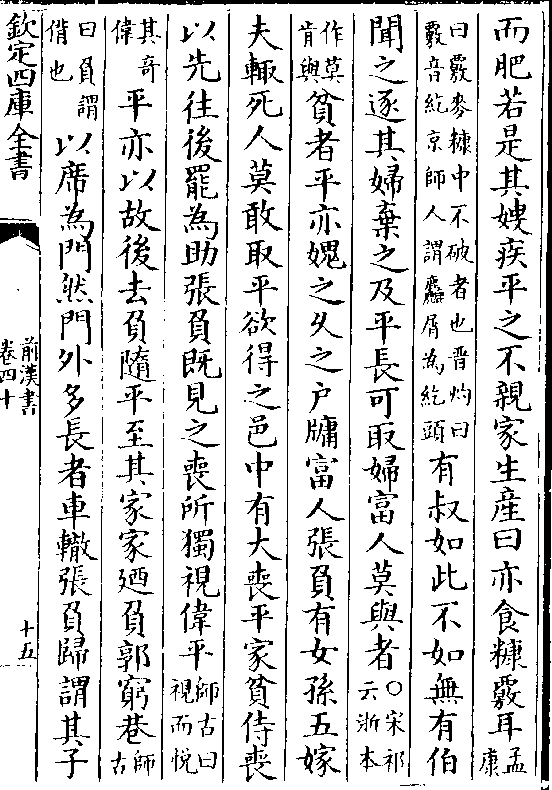 而肥若是其嫂疾平之不親家生産曰亦食糠覈耳孟康
曰覈麥糠中不破者也晋灼曰覈音紇京師人謂麤屑為紇頭有叔如此不如無有伯
聞之逐其婦棄之及平長可取婦富人莫與者○宋祁云浙本
作莫肯與貧者平亦媿之久之户牖富人張負有女孫五嫁
夫輒死人莫敢取平欲得之邑中有大喪平家貧侍喪
以先往後罷為助張負既見之喪所獨視偉平師古曰視而悦
其奇偉平亦以故後去負隨平至其家家廼負郭窮巷師古
曰負謂偝也以席為門然門外多長者車轍張負歸謂其子
欽定四庫全書
前漢書
卷四十
十五